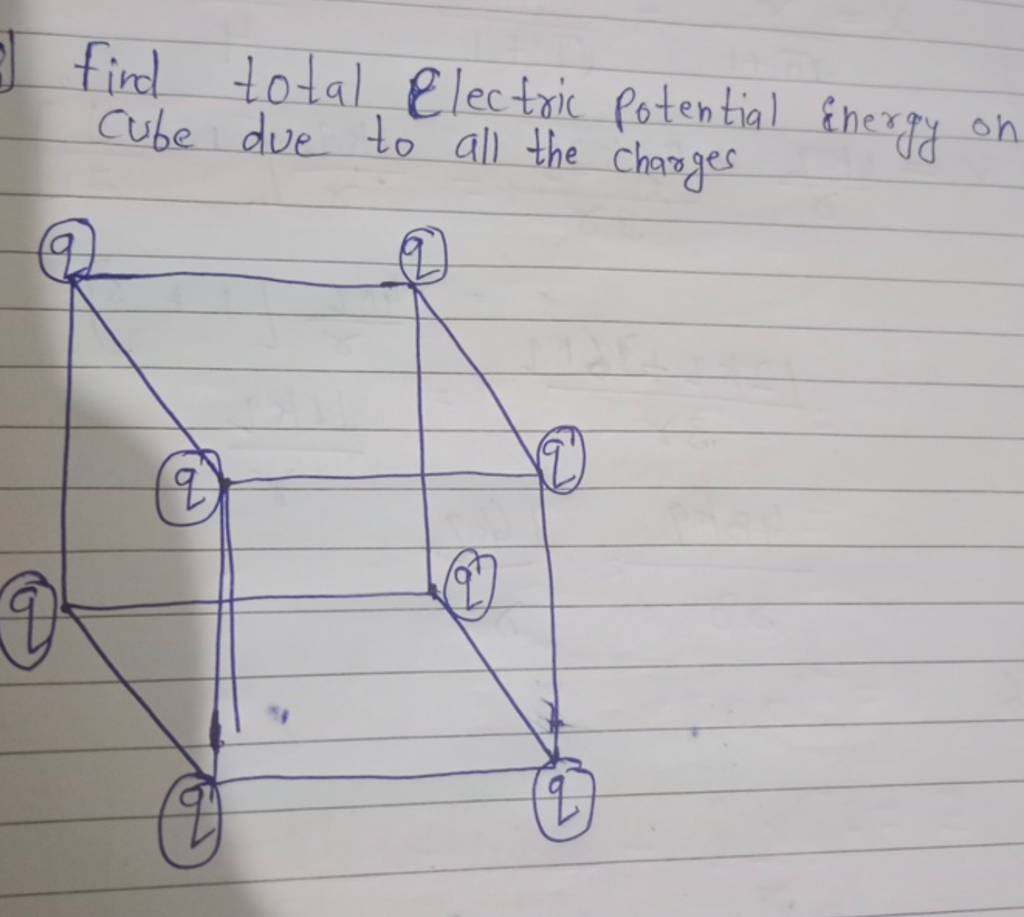 Find total Electric Potential Energy on
Cube due to all the charges
q q
q q
q q
q q